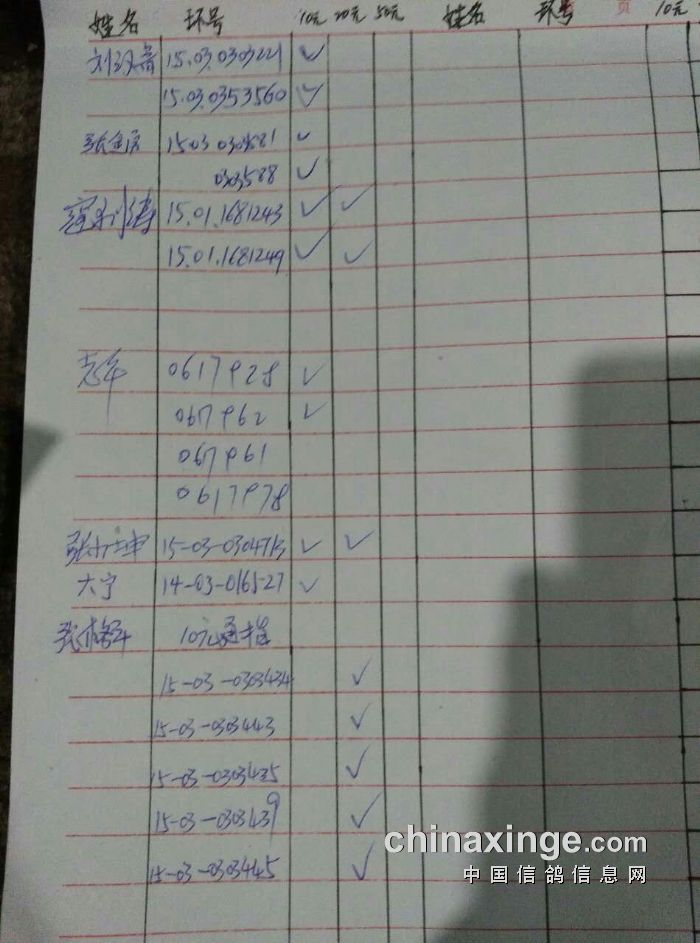 姓名 环号 10元 20元 50元 姓名 环号 页 10元
刘 15.03.0303221 ✓
15.03.0353560 ✓
张金 15.03 0303581 ✓
0303588 ✓
15.01.1681243 ✓ ✓
15.01.1681249 ✓ ✓
0617928 ✓
0617962 ✓
0617961
0617978
张 15-03-0304713 ✓ ✓
大宁 14-03-016527 ✓
张 10元通指
15-03-0303434 ✓
15-03-0303443 ✓
15-03-0303435 ✓
15-03-0303439 ✓
15-03-0303445 ✓
chinaxinge.com
中国信鸽信息网